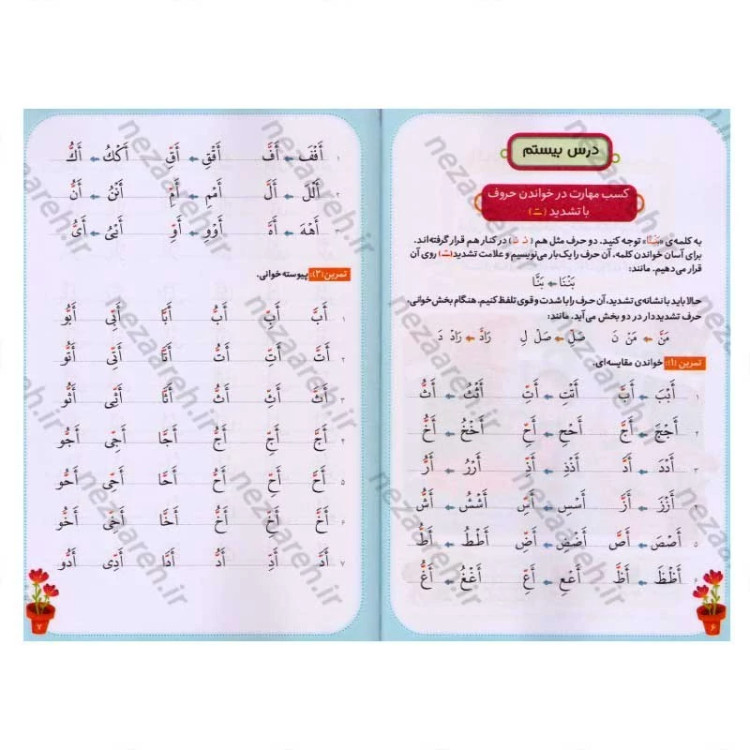 درس بیستم
کسب مهارت در خواندن حروف
با تشدید (ـّـ)
به کلمه‌ی «بَنْنا» توجه کنید. دو حرف مثل هم (نْ نَ) در کنار هم قرار گرفته‌اند.
برای آسان خواندن کلمه، آن حرف را یک‌بار می‌نویسیم و علامت تشدید (ـّـ) روی آن
قرار می‌دهیم. مانند:
بَنْنَا ← بَنَّا
حالا باید با نشانه‌ی تشدید، آن حرف را با شدت و قوی تلفظ کنیم. هنگام بخش‌خوانی،
حرف تشدیددار در دو بخش می‌آید. مانند:
مَنَّ ← مَنْ نَ صَلِّ ← صَلْ لِ رَادَّ ← رَادْ دَ
تمرین (۱): خواندن مقایسه‌ای.
۱ أَبْبَ ← أَبَّ أَتْتِ ← أَتِّ أَثْثُ ← أَثُّ
۲ أَجْجَ ← أَجَّ أَحْحِ ← أَحِّ أَخْخُ ← أَخُّ
۳ أَدْدَ ← أَدَّ أَذْذِ ← أَذِّ أَرْرُ ← أَرُّ
۴ أَزْزَ ← أَزَّ أَسْسِ ← أَسِّ أَشْشُ ← أَشُّ
۵ أَصْصَ ← أَصَّ أَضْضِ ← أَضِّ أَطْطُ ← أَطُّ
۶ أَظْظَ ← أَظَّ أَعْعِ ← أَعِّ أَغْغُ ← أَغُّ
۶
۱ أَفْفَ ← أَفَّ أَقْقِ ← أَقِّ أَكْكُ ← أَكُّ
۲ أَلْلَ ← أَلَّ أَمْمِ ← أَمِّ أَنْنُ ← أَنُّ
۳ أَهْهَ ← أَهَّ أَوْوِ ← أَوِّ أَيْيُ ← أَيُّ
تمرین (۲): پیوسته خوانی.
۱ أَبَّ أَبِّ أَبُّ أَبَّا أَبِّی أَبُّو
۲ أَتَّ أَتِّ أَتُّ أَتَّا أَتِّی أَتُّو
۳ أَثَّ أَثِّ أَثُّ أَثَّا أَثِّی أَثُّو
۴ أَجَّ أَجِّ أَجُّ أَجَّا أَجِّی أَجُّو
۵ أَحَّ أَحِّ أَحُّ أَحَّا أَحِّی أَحُّو
۶ أَخَّ أَخِّ أَخُّ أَخَّا أَخِّی أَخُّو
۷ أَدَّ أَدِّ أَدُّ أَدَّا أَدِّی أَدُّو
۷
nezaareh.ir
nezaareh.ir
nezaareh.ir
nezaareh.ir
nezaareh.ir
nezaareh.ir